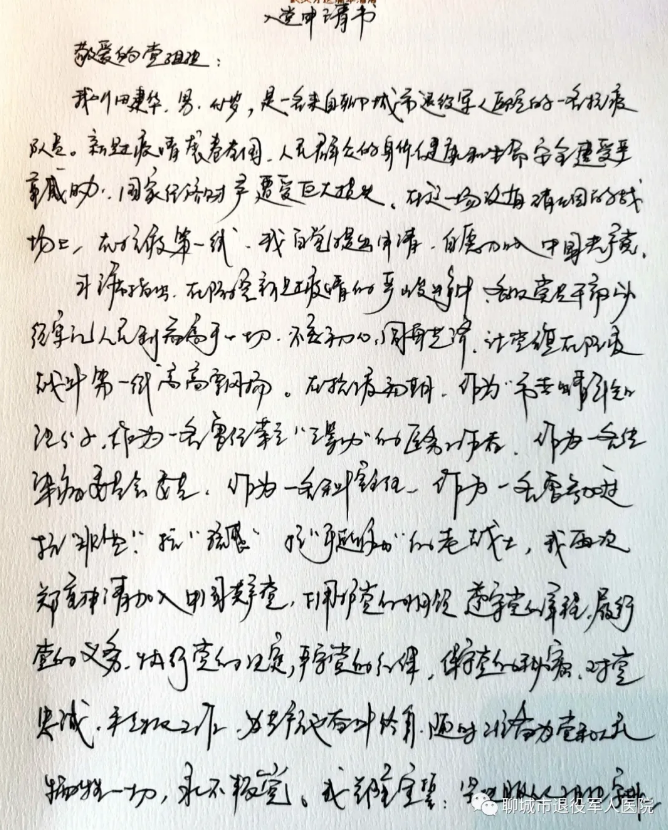 入党申请书
敬爱的党组织：
我叫田秉华，男，岁，是一名来自聊城市退役军人医院的一名抗疫
队员。新冠疫情席卷全国，人民群众的身体健康和生命安全遭受严
重威胁，国家经济财产遭受巨大损失，在这一场没有硝烟的战
场上，在抗疫第一线，我自觉提出申请，自愿加入中国共产党。
习 指出，在防控新冠疫情的严峻斗争中，各级党员干部
牢记人民利益高于一切，不忘初心，同舟共济，让党旗在防疫
战斗第一线高高飘扬。在抗疫初期，作为
作为一名曾经荣立“三等功”的医务工作者，作为一名传
染病委员会委员，作为一名科室主任，作为一名曾参加过
抗“非典”、抗“ ”、抗“ ”的老战士，我再次
郑重申请加入中国共产党，拥护党的纲领，遵守党的章程，履行
党的义务，执行党的决定，严守党的纪律，保守党的秘密，对党
忠诚，积极工作，为共产主义奋斗终身，随时准备为党和人民
牺牲一切，永不叛党。我郑重宣誓：坚决服从
聊城市退役军人医院